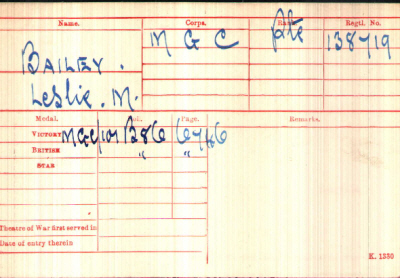 Name. Corps. Rank. Regtl. No.
BAILEY. M G C Pte 138719
Leslie. M.
Medal. Roll. Page. Remarks.
VICTORY MGC/101 B86 6746
BRITISH " "
STAR
Theatre of War first served in
Date of entry therein
K. 1380